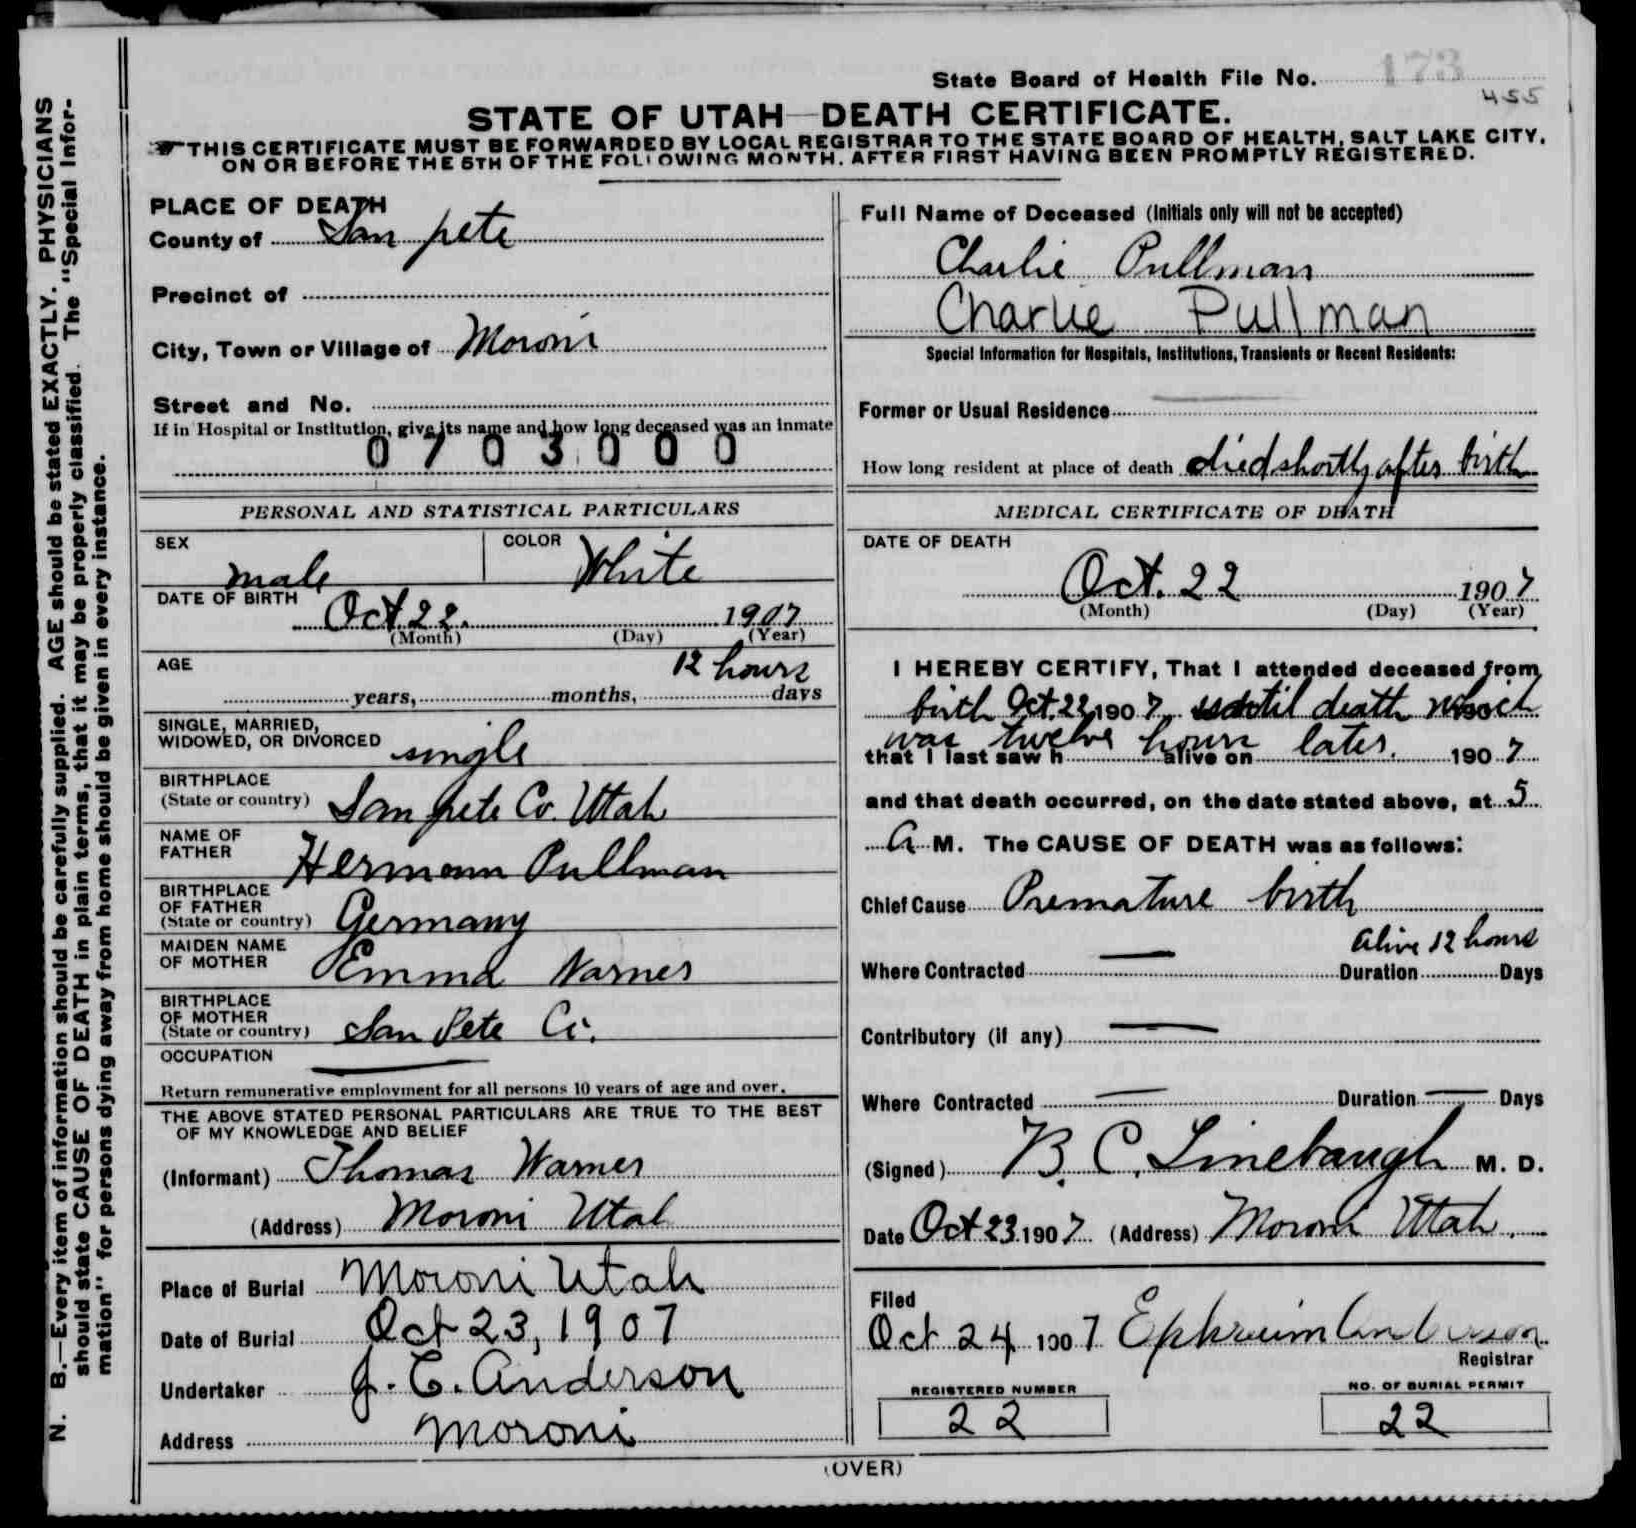 State Board of Health File No. 173
455
STATE OF UTAH—DEATH CERTIFICATE.
THIS CERTIFICATE MUST BE FORWARDED BY LOCAL REGISTRAR TO THE STATE BOARD OF HEALTH, SALT LAKE CITY,
ON OR BEFORE THE 5TH OF THE FOLLOWING MONTH, AFTER FIRST HAVING BEEN PROMPTLY REGISTERED.
N. B.—Every item of information should be carefully supplied. AGE should be stated EXACTLY. PHYSICIANS
should state CAUSE OF DEATH in plain terms, that it may be properly classified. The "Special Infor-
mation" for persons dying away from home should be given in every instance.
PLACE OF DEATH
County of San pete
Precinct of
City, Town or Village of Moroni
Street and No.
If in Hospital or Institution, give its name and how long deceased was an inmate
0703000
PERSONAL AND STATISTICAL PARTICULARS
SEX male COLOR White
DATE OF BIRTH Oct. 22. 1907
(Month) (Day) (Year)
AGE 12 hours
years, months, days
SINGLE, MARRIED,
WIDOWED, OR DIVORCED single
BIRTHPLACE
(State or country) San pete Co. Utah
NAME OF
FATHER Hermann Pullman
BIRTHPLACE
OF FATHER
(State or country) Germany
MAIDEN NAME
OF MOTHER Emma Warner
BIRTHPLACE
OF MOTHER
(State or country) San Pete Co.
OCCUPATION —
Return remunerative employment for all persons 10 years of age and over.
THE ABOVE STATED PERSONAL PARTICULARS ARE TRUE TO THE BEST
OF MY KNOWLEDGE AND BELIEF
(Informant) Thomas Warner
(Address) Moroni Utah
Place of Burial Moroni Utah
Date of Burial Oct 23, 1907
Undertaker J. C. Anderson
Address Moroni
Full Name of Deceased (Initials only will not be accepted)
Charlie Pullman
Charlie Pullman
Special Information for Hospitals, Institutions, Transients or Recent Residents:
Former or Usual Residence —
How long resident at place of death died shortly after birth
MEDICAL CERTIFICATE OF DEATH
DATE OF DEATH
Oct. 22 1907
(Month) (Day) (Year)
I HEREBY CERTIFY, That I attended deceased from
birth Oct. 22, 1907, until death which 190
was twelve hours later.
that I last saw h alive on 1907
and that death occurred, on the date stated above, at 5
A M. The CAUSE OF DEATH was as follows:
Chief Cause Premature birth
alive 12 hours
Where Contracted — Duration Days
Contributory (if any) —
Where Contracted — Duration — Days
(Signed) B. C. Linebaugh M. D.
Date Oct 23 1907 (Address) Moroni Utah.
Filed
Oct 24 1907 Ephraim Anderson
Registrar
REGISTERED NUMBER
22
NO. OF BURIAL PERMIT
22
(OVER)